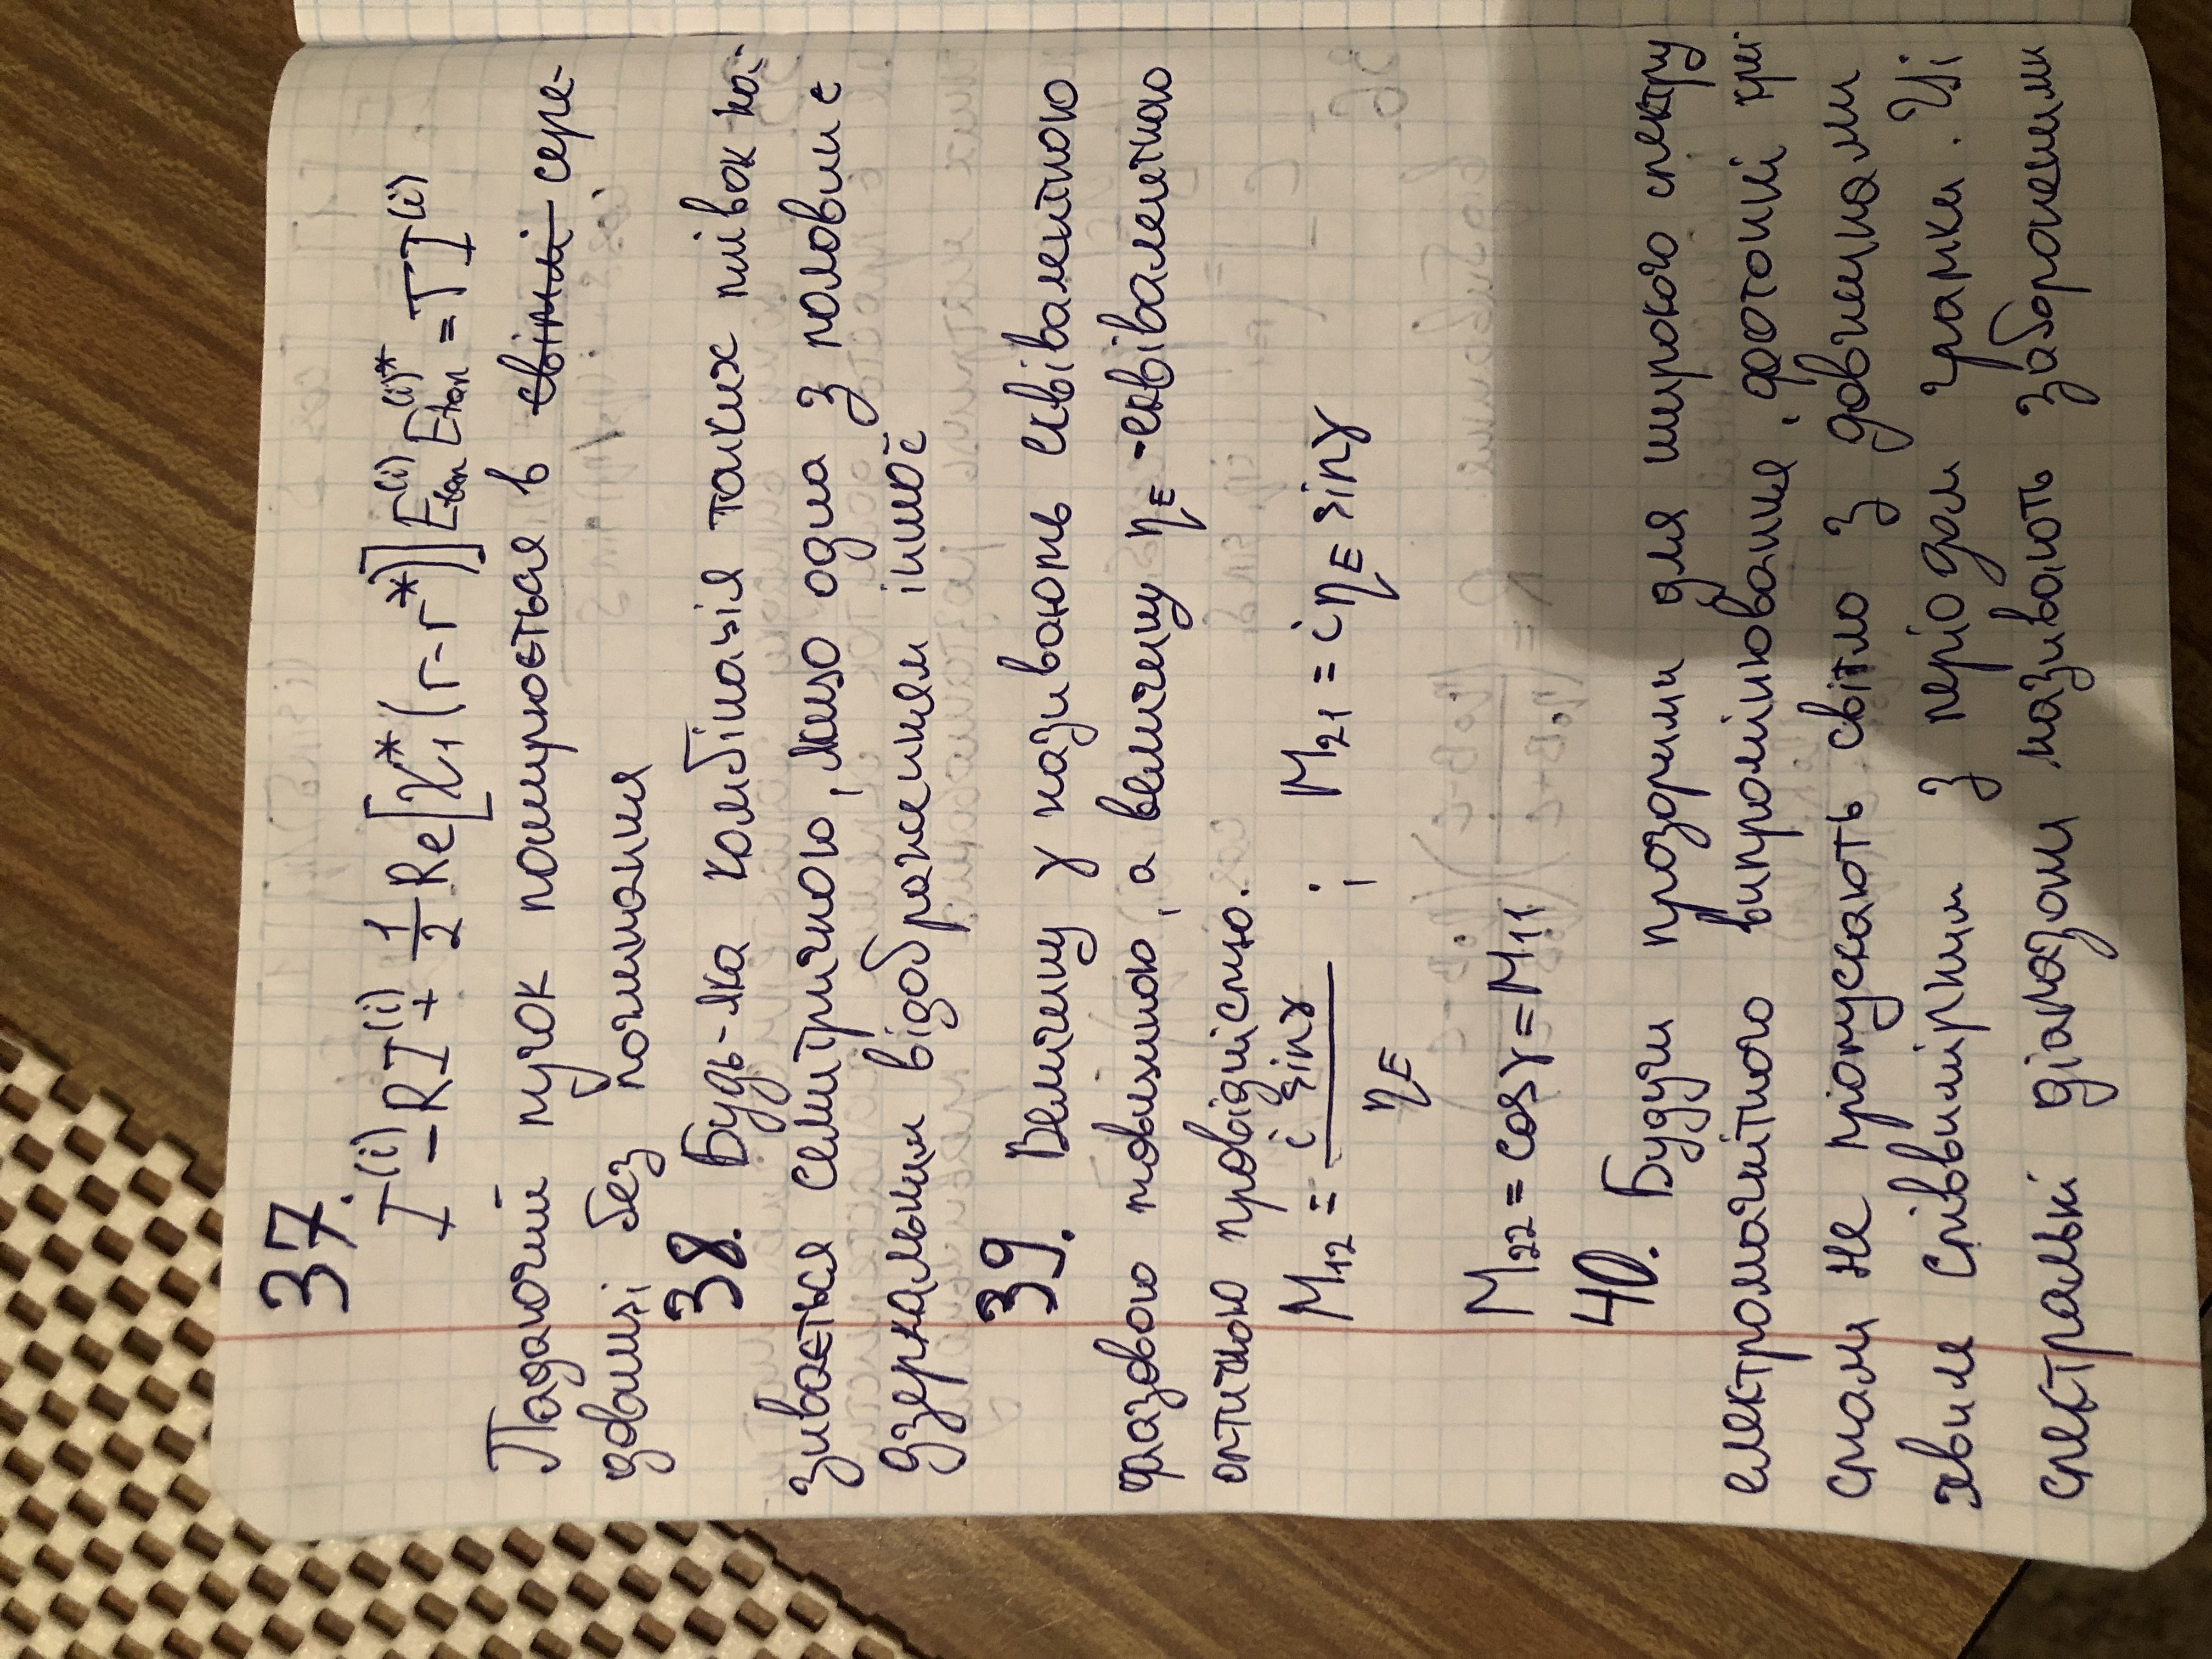 37.
I^(i) − RI^(i) + 1/2 Re[χ₁*(r−r*)] E_tan^(i) E_tan^(i)* = TI^(i)
Падаючий пучок поширюється в світлі сере-
довищі без поглинання
38. Будь-яка комбінація таких плівок на-
зивається семитричною, якщо одна з половин є
дзеркальним відображенням іншої
39. Величину γ називають еквівалентною
фазовою товщиною, а величину η_E - еквівалентною
оптичною провідністю.
M₁₂ = i sinγ / η_E ; M₂₁ = iη_E sinγ
M₂₂ = cosγ = M₁₁
40. Будучи прозорими для широкого спектру
електромагнітного випромінювання, фотонні кри-
стали не пропускають світло з довжинами
хвиле співвимірним з періодом гратки. Ці
спектральні діапазони називають забороненими